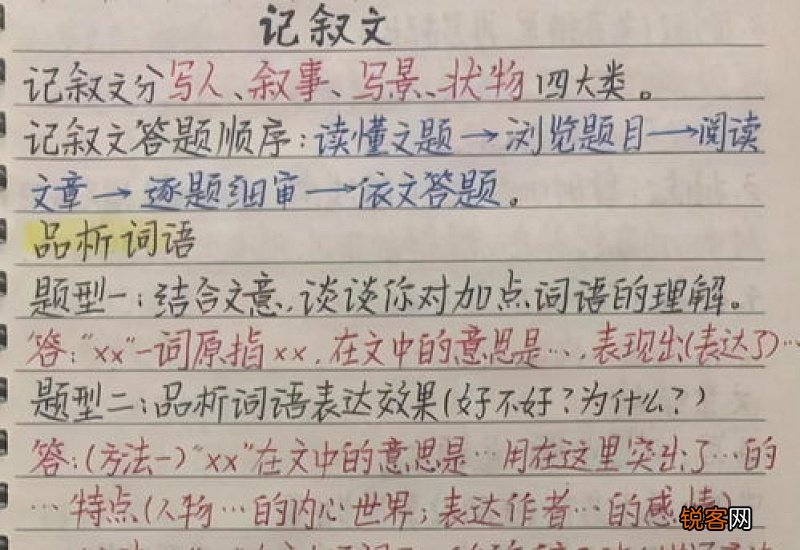 记叙文
记叙文分写人、叙事、写景、状物四大类。
记叙文答题顺序:读懂文题→浏览题目→阅读
文章→逐题细审→依文答题。
品析词语
题型一:结合文意,谈谈你对加点词语的理解。
答:"××"一词原指××,在文中的意思是…,表现出(表达了)…
题型二:品析词语表达效果(好不好?为什么?)
答:(方法一)"××"在文中的意思是…用在这里突出了…的
…特点(人物…的内心世界;表达作者…的感情)
锐客网